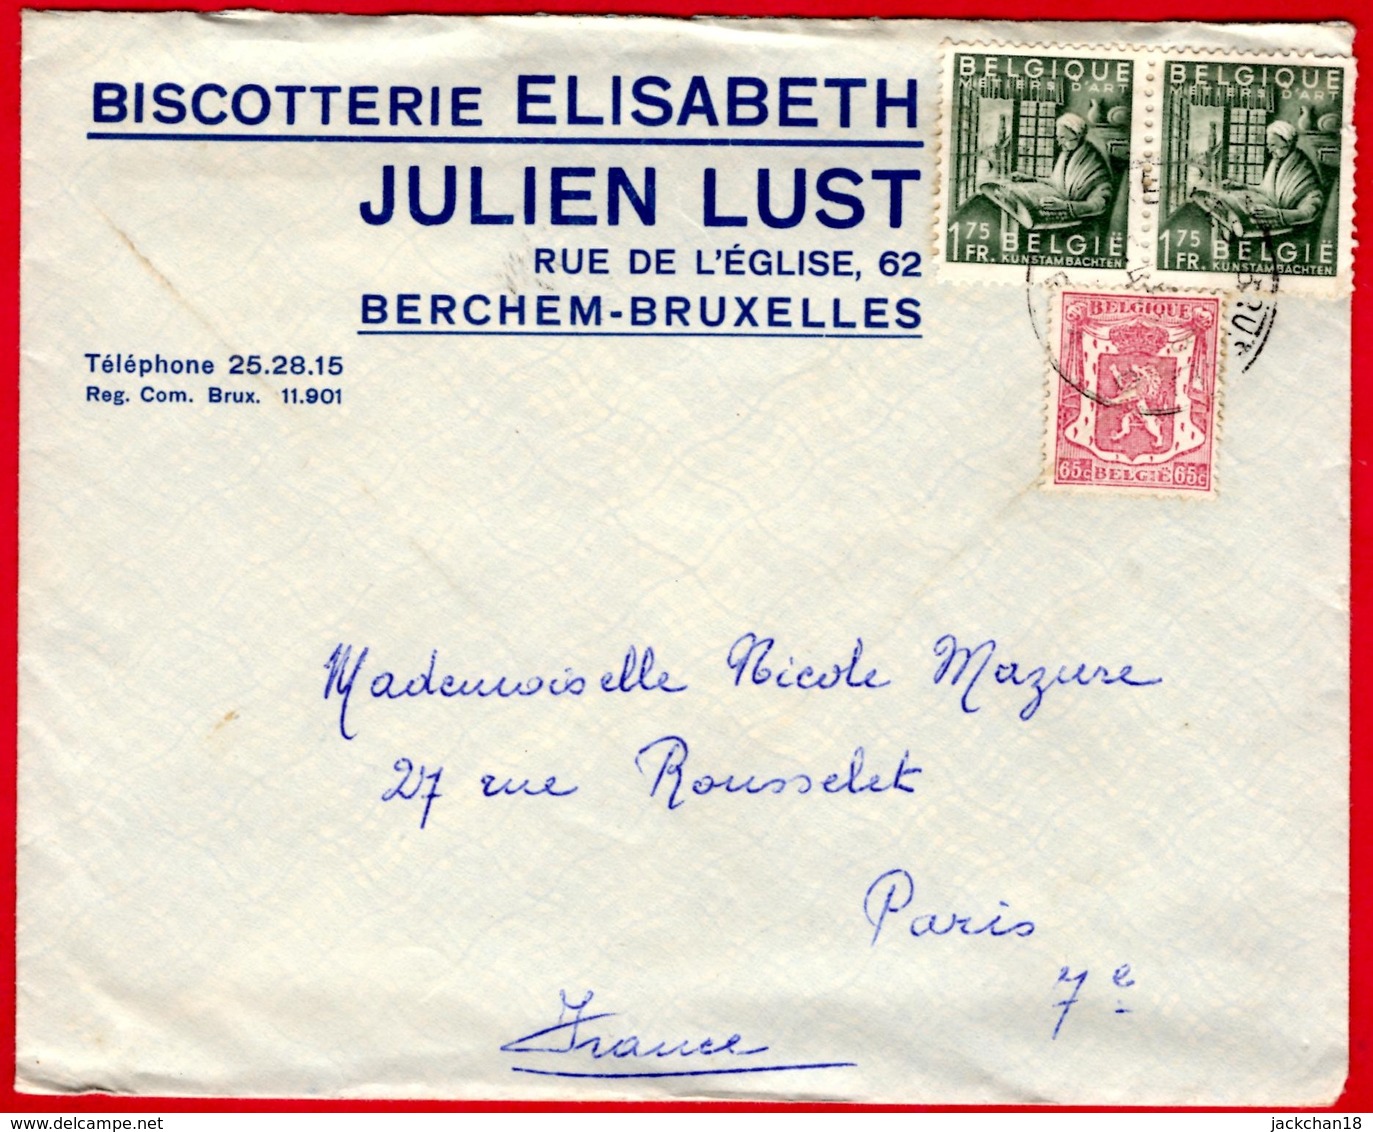 BISCOTTERIE ELISABETH
JULIEN LUST
RUE DE L'ÉGLISE, 62
BERCHEM-BRUXELLES
Téléphone 25.28.15
Reg. Com. Brux. 11.901
BELGIQUE
METIERS D'ART
1 75 FR.
BELGIË
KUNSTAMBACHTEN
BELGIQUE
METIERS D'ART
1 75 FR.
BELGIË
KUNSTAMBACHTEN
BELGIQUE
65c BELGIË 65c
Mademoiselle Nicole Mazure
27 rue Rousselet
Paris
7e
France
jackchan18